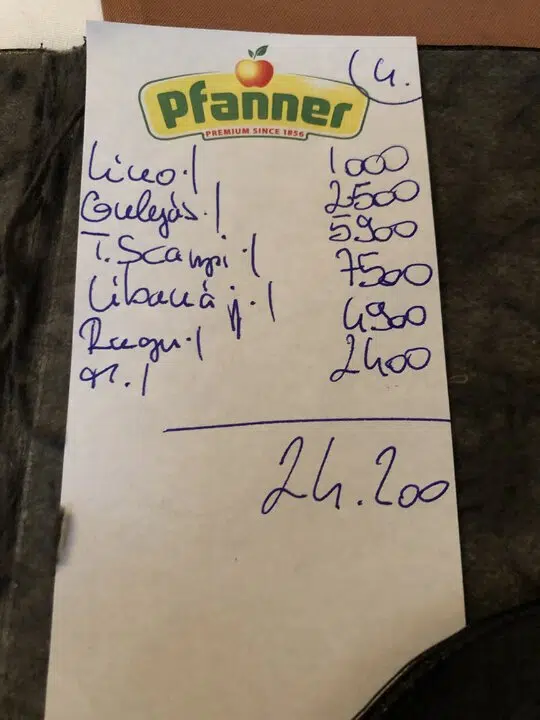 (4.
Pfanner
PREMIUM SINCE 1856
Limo. / 1000
Gulyás. / 2500
T. Scampi. / 5900
Libamáj. / 7500
Ragu. / 4900
/ 2400
24.200